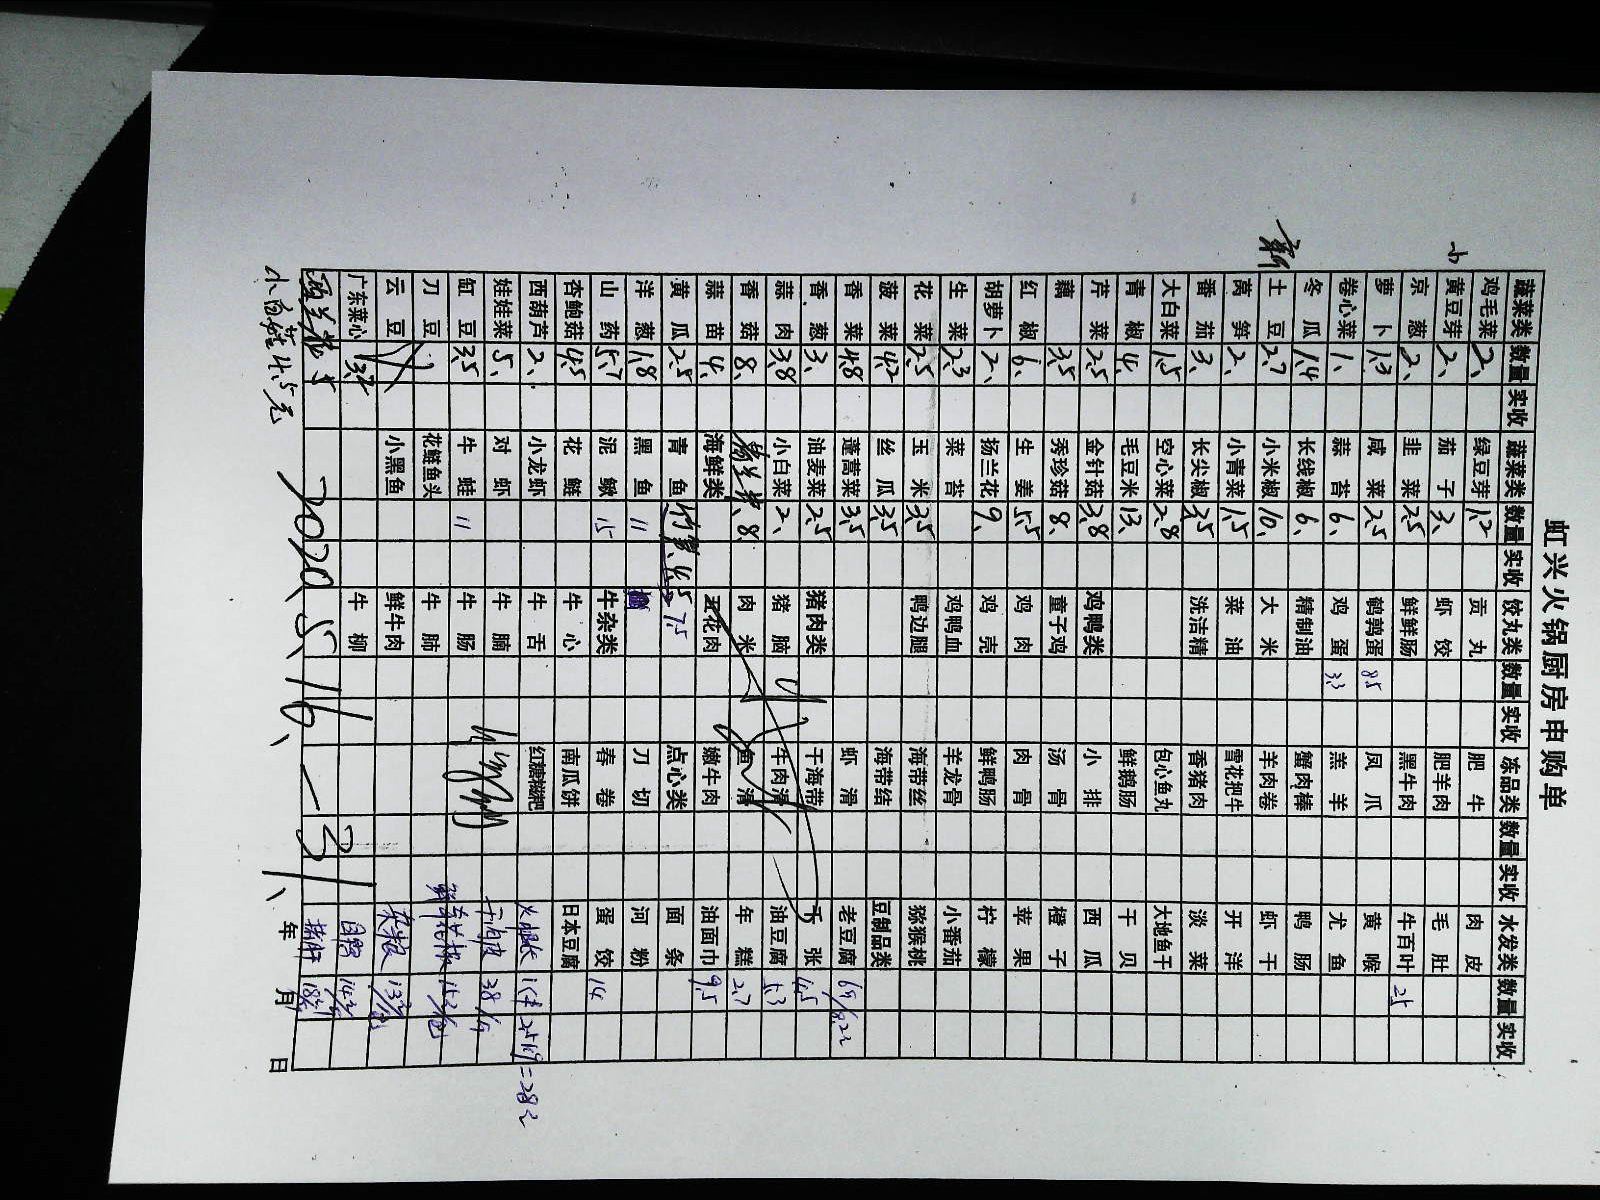 虹兴火锅厨房申购单
蔬菜类 数量 实收 蔬菜类 数量 实收 饺丸类 数量 实收 冻品类 数量 实收 水发类 数量 实收
鸡毛菜 2、 绿豆芽 1.2 贡丸 肥牛 肉皮
黄豆芽 2、 茄子 3、 虾饺 肥羊肉 毛肚
京葱 2、 韭菜 2.5 鲜鲜肠 黑牛肉 牛百叶 25
萝卜 1.3 咸菜 2.5 鹌鹑蛋 8.5 凤爪 黄喉
卷心菜 1、 蒜苔 6、 鸡蛋 3.3 羔羊 尤鱼
冬瓜 1.4 长线椒 6、 精制油 蟹肉棒 鸭肠
土豆 2.7 小米椒 10、 大米 羊肉卷 虾干
莴笋 2、 小青菜 1.5 菜油 雪花把牛 开洋
番茄 3、 长尖椒 3.5 洗洁精 香猪肉 淡菜
大白菜 1.5 空心菜 2.8 包心鱼丸 大地鱼干
青椒 4、 毛豆米 13、 鲜鹅肠 干贝
芹菜 2.5 金针菇 3.8 鸡鸭类 小排 西瓜
藕 3.5 秀珍菇 8、 童子鸡 汤骨 橙子
红椒 6、 生姜 5.5 鸡肉 肉骨 苹果
胡萝卜 2、 杨兰花 9、 鸡壳 鲜鸭肠 柠檬
生菜 2.3 菜苔 鸡鸭血 羊龙骨 小番茄
花菜 2.5 玉米 3.5 鸭边腿 海带丝 猕猴桃
菠菜 4.2 丝瓜 3.5 海带结 豆制品类
香菜 4.8 蓬蒿菜 3.5 虾滑 老豆腐
香葱 3、 油麦菜 2.5 猪肉类 干海带 千张 4.5
蒜肉 3.8 小白菜 2、 猪脑 牛肉滑 油豆腐 5.3
香菇 8、 8、 肉米 鱼滑 年糕 2.7
蒜苗 4、 海鲜类 五花肉 嫩牛肉 油面巾 9.5
黄瓜 2.5 青鱼 点心类 面条
洋葱 1.8 黑鱼 11 刀切 河粉
山药 5.7 泥鳅 15 牛杂类 春卷 蛋饺 14
杏鲍菇 4.5 花鲢 牛心 南瓜饼 日本豆腐
西葫芦 2、 小龙虾 牛舌 红糖糍粑
娃娃菜 5、 对虾 牛腩
缸豆 3.5 牛蛙 11 牛肠
刀豆 花鲢鱼头 牛肺
云豆 小黑鱼 鲜牛肉
广东菜心 牛柳
2020、5、16、—31、
年 月 日